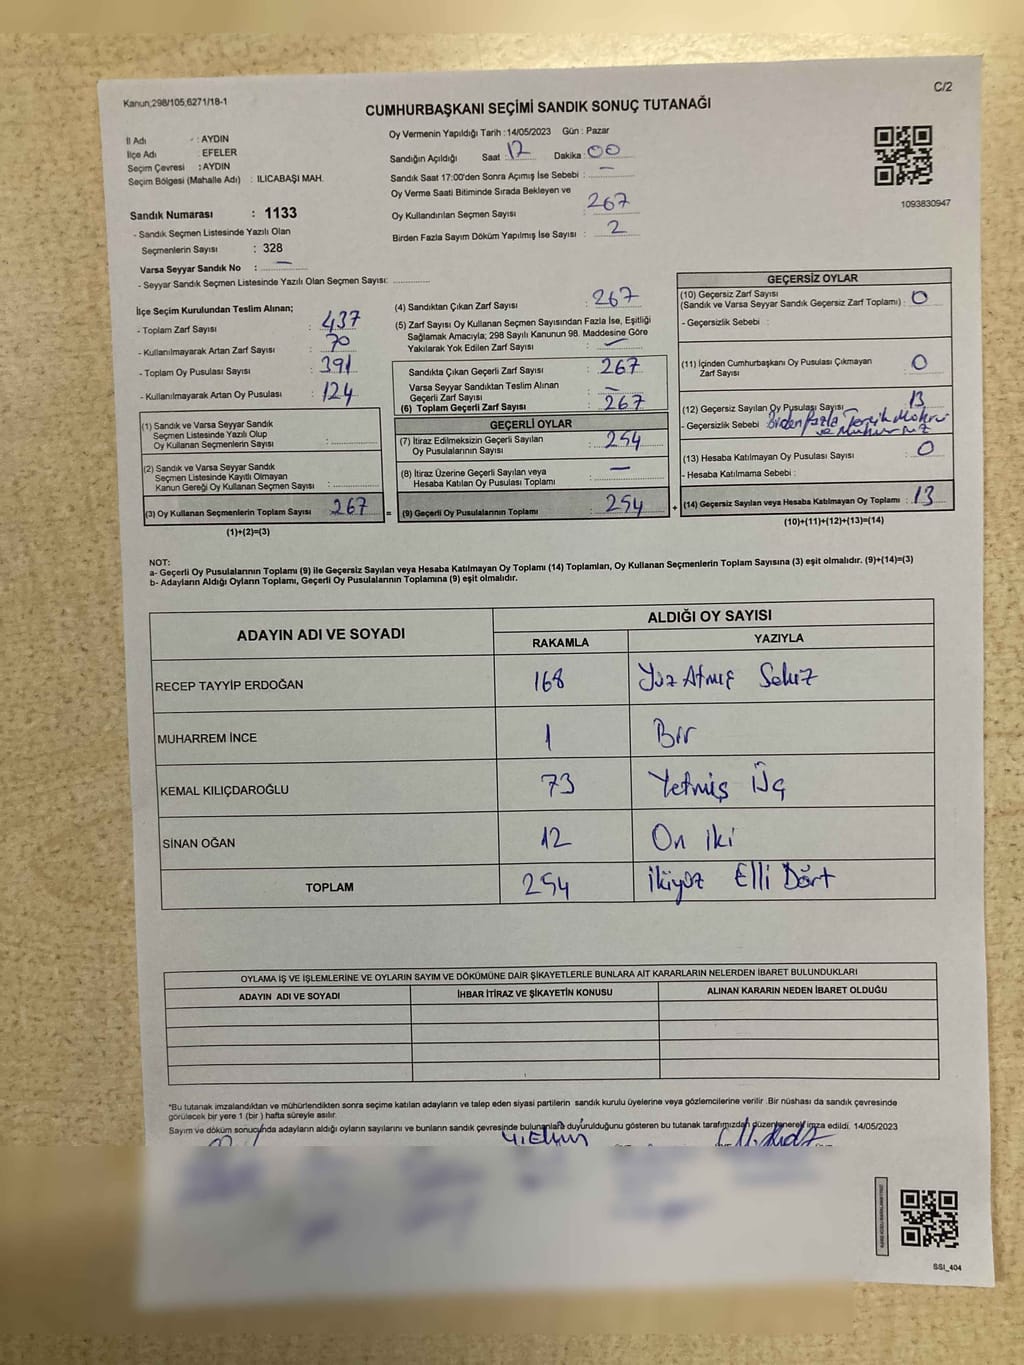 Kanun,298/105,6271/18-1
C/2
CUMHURBAŞKANI SEÇİMİ SANDIK SONUÇ TUTANAĞI
İl Adı : AYDIN
İlçe Adı : EFELER
Seçim Çevresi : AYDIN
Seçim Bölgesi (Mahalle Adı) : ILICABAŞI MAH.
Oy Vermenin Yapıldığı Tarih : 14/05/2023 Gün : Pazar
Sandığın Açıldığı Saat : 17 Dakika : 00
Sandık Saat 17:00'den Sonra Açımış İse Sebebi : –
Oy Verme Saati Bitiminde Sırada Bekleyen ve
Oy Kullandırılan Seçmen Sayısı : 267
Birden Fazla Sayım Döküm Yapılmış İse Sayısı : 2
1093830947
Sandık Numarası : 1133
- Sandık Seçmen Listesinde Yazılı Olan
Seçmenlerin Sayısı : 328
Varsa Seyyar Sandık No : –
- Seyyar Sandık Seçmen Listesinde Yazılı Olan Seçmen Sayısı:
İlçe Seçim Kurulundan Teslim Alınan;
- Toplam Zarf Sayısı : 437
- Kullanılmayarak Artan Zarf Sayısı : 70
- Toplam Oy Pusulası Sayısı : 391
- Kullanılmayarak Artan Oy Pusulası : 124
(1) Sandık ve Varsa Seyyar Sandık
Seçmen Listesinde Yazılı Olup
Oy Kullanan Seçmenlerin Sayısı :
(2) Sandık ve Varsa Seyyar Sandık
Seçmen Listesinde Kayıtlı Olmayan
Kanun Gereği Oy Kullanan Seçmen Sayısı :
(3) Oy Kullanan Seçmenlerin Toplam Sayısı : 267
(1)+(2)=(3)
(4) Sandıktan Çıkan Zarf Sayısı : 267
(5) Zarf Sayısı Oy Kullanan Seçmen Sayısından Fazla İse, Eşitliği
Sağlamak Amacıyla; 298 Sayılı Kanunun 98. Maddesine Göre
Yakılarak Yok Edilen Zarf Sayısı : –
Sandıkta Çıkan Geçerli Zarf Sayısı : 267
Varsa Seyyar Sandıktan Teslim Alınan
Geçerli Zarf Sayısı : –
(6) Toplam Geçerli Zarf Sayısı : 267
GEÇERLİ OYLAR
(7) İtiraz Edilmeksizin Geçerli Sayılan
Oy Pusulalarının Sayısı : 254
(8) İtiraz Üzerine Geçerli Sayılan veya
Hesaba Katılan Oy Pusulası Toplamı : –
= (9) Geçerli Oy Pusulalarının Toplamı : 254 +
GEÇERSİZ OYLAR
(10) Geçersiz Zarf Sayısı
(Sandık ve Varsa Seyyar Sandık Geçersiz Zarf Toplamı) : 0
- Geçersizlik Sebebi :
(11) İçinden Cumhurbaşkanı Oy Pusulası Çıkmayan
Zarf Sayısı : 0
(12) Geçersiz Sayılan Oy Pusulası Sayısı : 13
- Geçersizlik Sebebi : Birden fazla Tercih
ve
(13) Hesaba Katılmayan Oy Pusulası Sayısı : 0
- Hesaba Katılmama Sebebi :
(14) Geçersiz Sayılan veya Hesaba Katılmayan Oy Toplamı : 13
(10)+(11)+(12)+(13)=(14)
NOT:
a- Geçerli Oy Pusulalarının Toplamı (9) ile Geçersiz Sayılan veya Hesaba Katılmayan Oy Toplamı (14) Toplamları, Oy Kullanan Seçmenlerin Toplam Sayısına (3) eşit olmalıdır. (9)+(14)=(3)
b- Adayların Aldığı Oyların Toplamı, Geçerli Oy Pusulalarının Toplamına (9) eşit olmalıdır.
ADAYIN ADI VE SOYADI
ALDIĞI OY SAYISI
RAKAMLA YAZIYLA
RECEP TAYYİP ERDOĞAN 168 Yüz Atmış Sekiz
MUHARREM İNCE 1 Bir
KEMAL KILIÇDAROĞLU 73 Yetmiş Üç
SİNAN OĞAN 12 On iki
TOPLAM 254 ikiyüz Elli Dört
OYLAMA İŞ VE İŞLEMLERİNE VE OYLARIN SAYIM VE DÖKÜMÜNE DAİR ŞİKAYETLERLE BUNLARA AİT KARARLARIN NELERDEN İBARET BULUNDUKLARI
ADAYIN ADI VE SOYADI İHBAR İTİRAZ VE ŞİKAYETİN KONUSU ALINAN KARARIN NEDEN İBARET OLDUĞU
*Bu tutanak imzalandıktan ve mühürlendikten sonra seçime katılan adayların ve talep eden siyasi partilerin sandık kurulu üyelerine veya gözlemcilerine verilir .Bir nüshası da sandık çevresinde
görülecek bir yere 1 (bir ) hafta süreyle asılır.
Sayım ve döküm sonucunda adayların aldığı oyların sayılarını ve bunların sandık çevresinde bulunanlara duyurulduğunu gösteren bu tutanak tarafımızdan düzenlenerek imza edildi. 14/05/2023
SSI_404